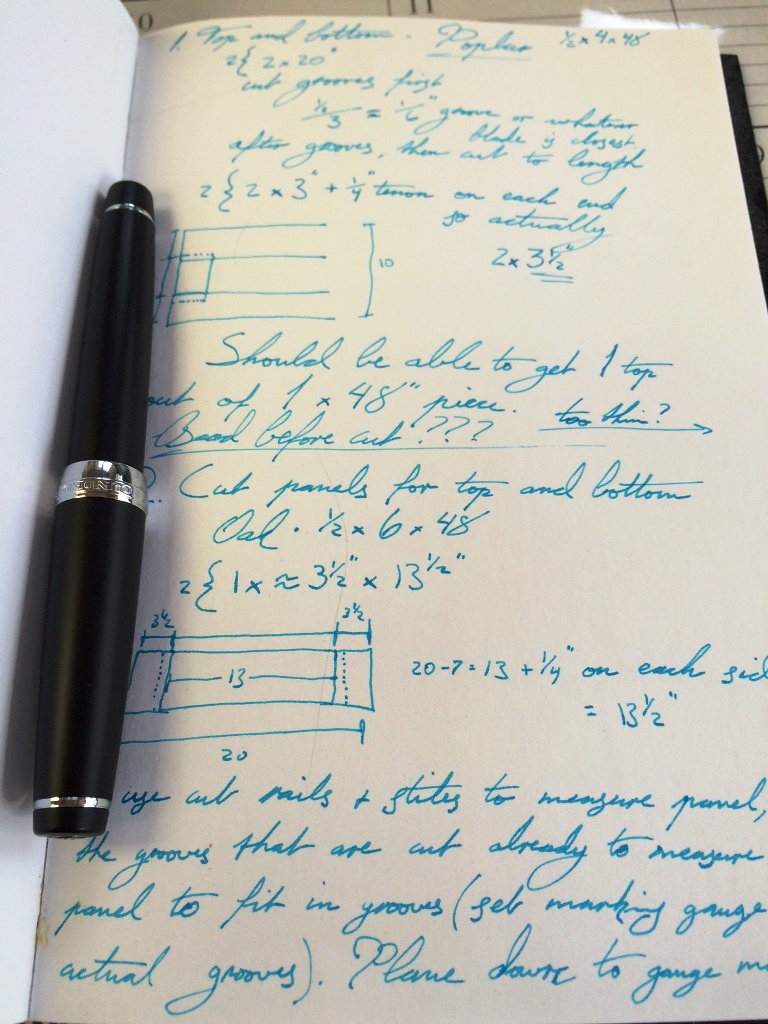 1. Top and bottom. Poplar 1/2 x 4 x 48
2{ 2 x 20"
cut grooves first
1/2 / 3 = 1/6" groove or whatever
blade is closest.
after grooves, then cut to length
2 { 2 x 3" + 1/4" tenon on each end
so actually
2 x 3 1/2"
10
Should be able to get 1 top
out of 1 x 48" piece. too thin?
Bead before cut???
2. Cut panels for top and bottom
Oal. 1/2 x 6 x 48
2 { 1 x ≈ 3 1/2" x 13 1/2"
3 1/2 3 1/2
13
20-7=13 + 1/4" on each sid
= 13 1/2"
20
use cut rails + stiles to measure panel,
the grooves that are cut already to measure
panel to fit in grooves (set marking gauge
actual grooves). Plane down to gauge m